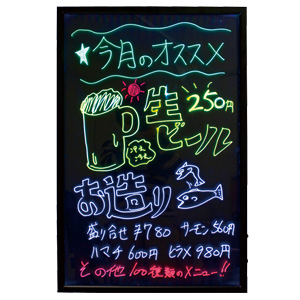 ★今月のオススメ
生ビール
250円
お造り
盛り合せ ¥780 サーモン 560円
ハマチ 600円 ヒラメ 980円
その他100種類のメニュー!!